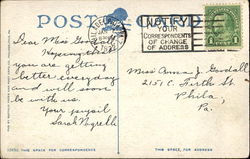 POST CARD
PHILADELPHIA
NOTIFY
YOUR
CORRESPONDENTS
OF CHANGE
OF ADDRESS
Dear Miss Goodall
Hoping that
you are getting
better everyday
and will soon
be with us.
Your pupil
Sarah
Miss Anna J. Goodall
2151 N. Firth St
Phila,
Pa.
THIS SPACE FOR CORRESPONDENCE
THIS SPACE FOR ADDRESS